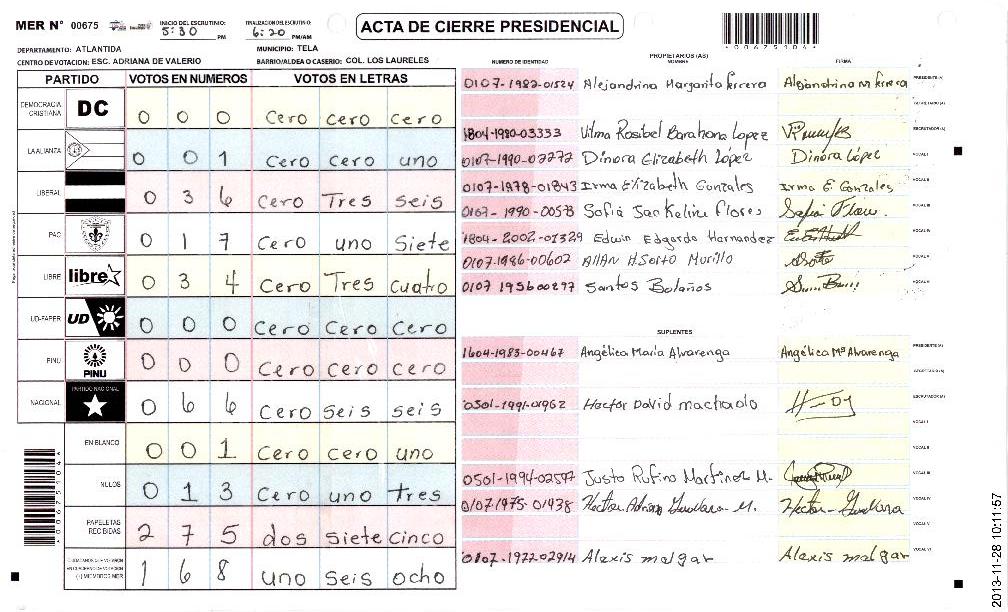 MER N° 00675
INICIO DEL ESCRUTINIO: 5:30 PM
FINALIZACION DEL ESCRUTINIO: 6:20 PM/AM
ACTA DE CIERRE PRESIDENCIAL
*00675104*
DEPARTAMENTO: ATLANTIDA
MUNICIPIO: TELA
CENTRO DE VOTACION: ESC. ADRIANA DE VALERIO
BARRIO/ALDEA O CASERIO: COL. LOS LAURELES
PARTIDO VOTOS EN NUMEROS VOTOS EN LETRAS
DEMOCRACIA CRISTIANA DC 0 0 0 Cero cero cero
LA ALIANZA 0 0 1 Cero Cero uno
LIBERAL 0 3 6 Cero Tres seis
PAC 0 1 7 Cero uno Siete
LIBRE libre 0 3 4 Cero Tres cuatro
UD-FAPER UD 0 0 0 Cero Cero Cero
PINU PINU 0 0 0 Cero cero cero
NACIONAL PARTIDO NACIONAL 0 6 6 Cero Seis seis
EN BLANCO 0 0 1 Cero Cero uno
NULOS 0 1 3 Cero uno tres
PAPELETAS RECIBIDAS 2 7 5 dos Siete cinco
(+) MIEMBROS MER 1 6 8 uno Seis ocho
NUMERO DE IDENTIDAD
PROPIETARIOS (AS)
NOMBRE
FIRMA
0107-1982-01524 Alejandrina Margarita Ferrera PRESIDENTE (A)
SECRETARIO (A)
1804-1980-03333 Vilma Rosibel Barahona Lopez ESCRUTADOR (A)
0107-1990-02272 Dinora Elizabeth López Dinora López VOCAL I
0107-1978-01843 Irma Elizabeth Gonzales Irma E. Gonzales VOCAL II
0107-1990-00573 Sofia Jackeline Flores VOCAL III
1804-2002-01329 Edwin Edgardo Hernandez VOCAL IV
0107-1986-00602 Allan H. Sorto Murillo VOCAL V
0107 195600277 Santos Bolaños VOCAL VI
SUPLENTES
1604-1983-00467 Angélica Maria Alvarenga Angélica Mª Alvarenga PRESIDENTE (A)
SECRETARIO (A)
0501-1991-01962 Hector David machado ESCRUTADOR (A)
VOCAL I
VOCAL II
0501-1994-02597 Justo Rufino Martinez M. VOCAL III
0107-1975-01438 Hector Adrian Guevara M. Hector Guevara VOCAL IV
VOCAL V
0107-1977-02914 Alexis melgar Alexis melgar VOCAL VI
*00675104*
2013-11-28 10:11:57